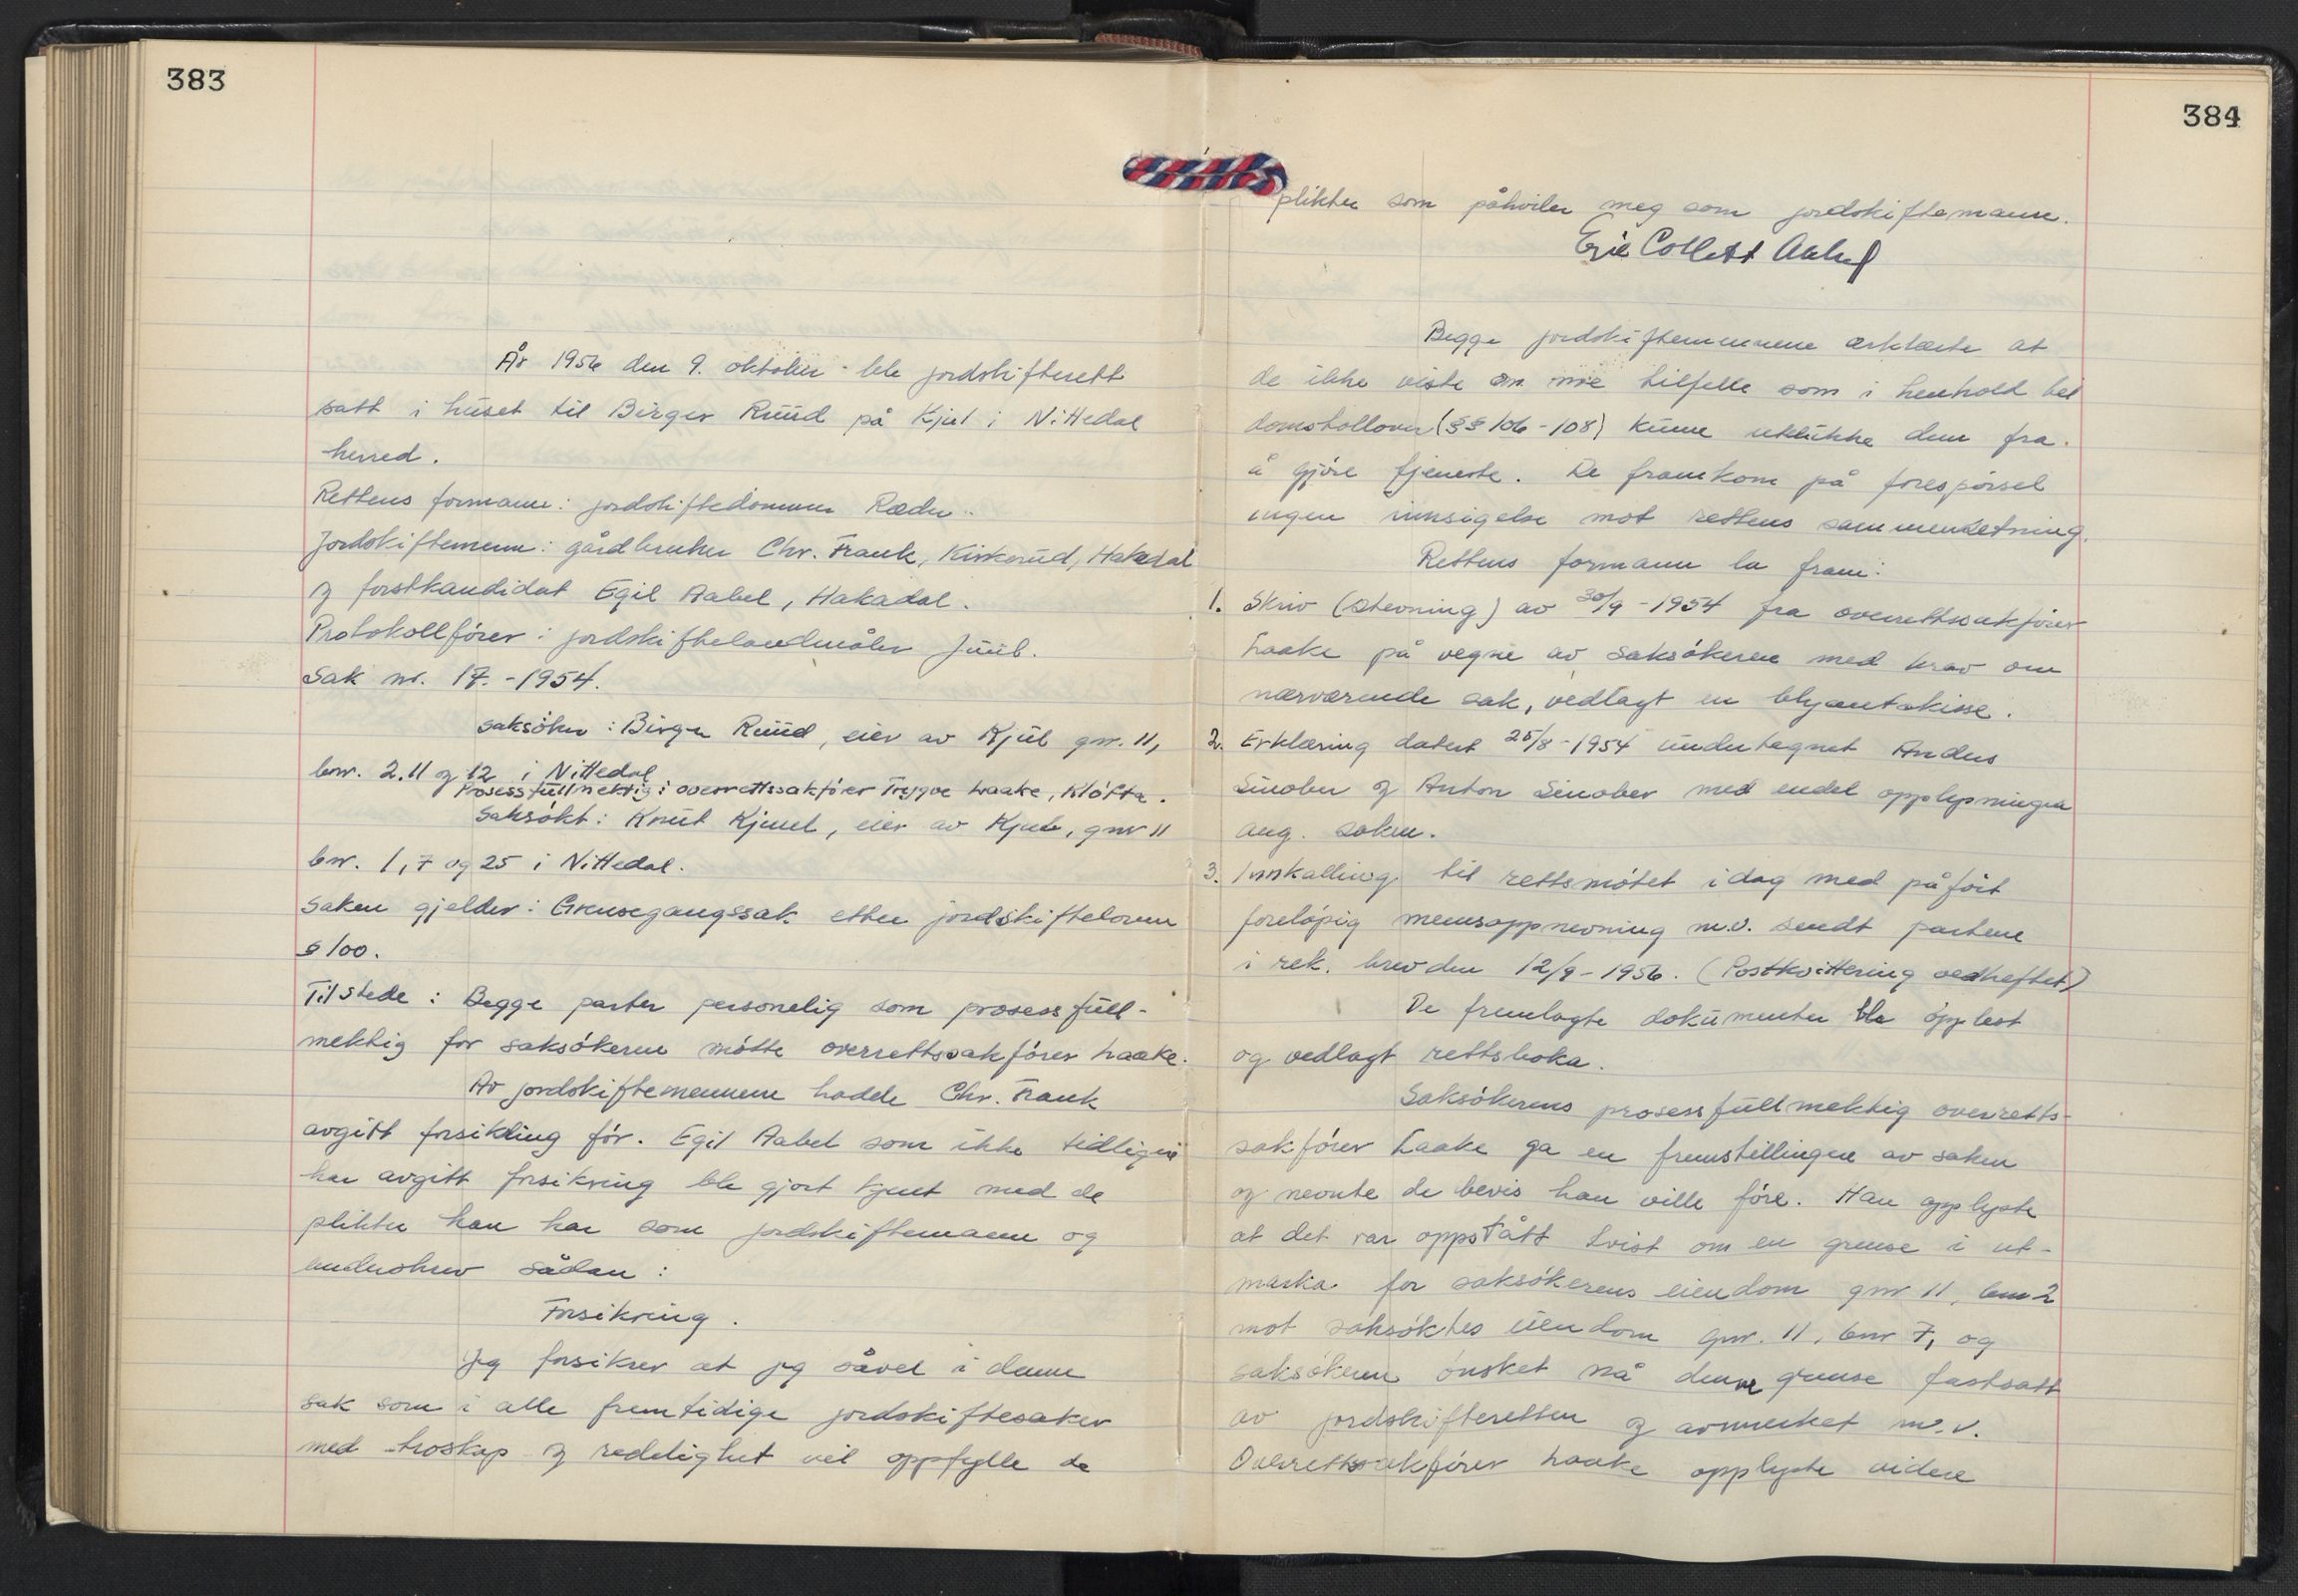 383
År 1956 den 9. oktober ble jordskifterett
satt i huset til Birger Ruud på Kjul i Nittedal
herred.
Rettens formann: jordskiftedommer Ræder.
Jordskiftemenn: gårdbruker Chr. Frank, Kirkerud, Hakadal
og forstkandidat Egil Aabel, Hakadal.
Protokollfører: jordskiftelandmåler Juul.
Sak nr. 17.-1954.
Saksøker: Birger Ruud, eier av Kjul gnr. 11,
bnr. 2.11 og 12 i Nittedal
Prosessfullmektig: overrettssakfører Trygve Laake, Kløfta.
Saksøkt: Knut Kjuul, eier av Kjul, gnr 11
bnr. 1, 7 og 25 i Nittedal.
Saken gjelder: Grensegangssak etter jordskifteloven
§ 100.
Tilstede: Begge parter personelig som prosessfull-
mektig for saksøkeren møtte overrettssakfører Laake.
Av jordskiftemennene hadde Chr. Frank
avgitt forsikling før. Egil Aabel som ikke tidligere
har avgitt forsikring ble gjort kjent med de
plikter han har som jordskiftemann og
underskrev sådan:
Forsikring.
Jeg forsikrer at jeg såvel i denne
sak som i alle fremtidige jordskiftesaker
med troskap og redelighet vil oppfylle de
384
plikter som påhviler meg som jordskiftemann.
Egil Collett Aabel
Begge jordskiftemennene erklærte at
de ikke viste om noe tilfelle som i henhold til
domstolloven (§§ 106-108) kunne utelukke dem fra
å gjøre tjeneste. De framkom på forespørsel
ingen innsigelse mot rettens sammensetning.
Rettens formann la fram:
1. Skriv (stevning) av 30/9-1954 fra overrettssakfører
Laake på vegne av saksøkeren med krav om
nærværende sak, vedlagt en blyantskisse.
2. Erklæring datert 25/8-1954 undertegnet Anders
Sinober og Anton Sinober med endel opplysninger
ang. saken.
3. Innkalling til rettsmøtet idag med påført
foreløpig mennsoppnevning m.v. sendt partene
i rek. brev den 12/9-1956. (Postkvittering vedheftet)
De fremlagte dokumenter ble opplest
og vedlagt rettsboka.
Saksøkerens prosessfullmektig overretts-
sakfører Laake ga en fremstillingen av saken
og nevnte de bevis han ville føre. Han opplyste
at det var oppstått tvist om en grense i ut-
marka for saksøkerens eiendom gnr 11, bnr 2
mot saksøktes eiendom gnr. 11, bnr 7, og
saksøkeren ønsket nå denne grense fastsatt
av jordskifteretten og avmerket m.v.
Overrettssakfører Laake opplyste videre